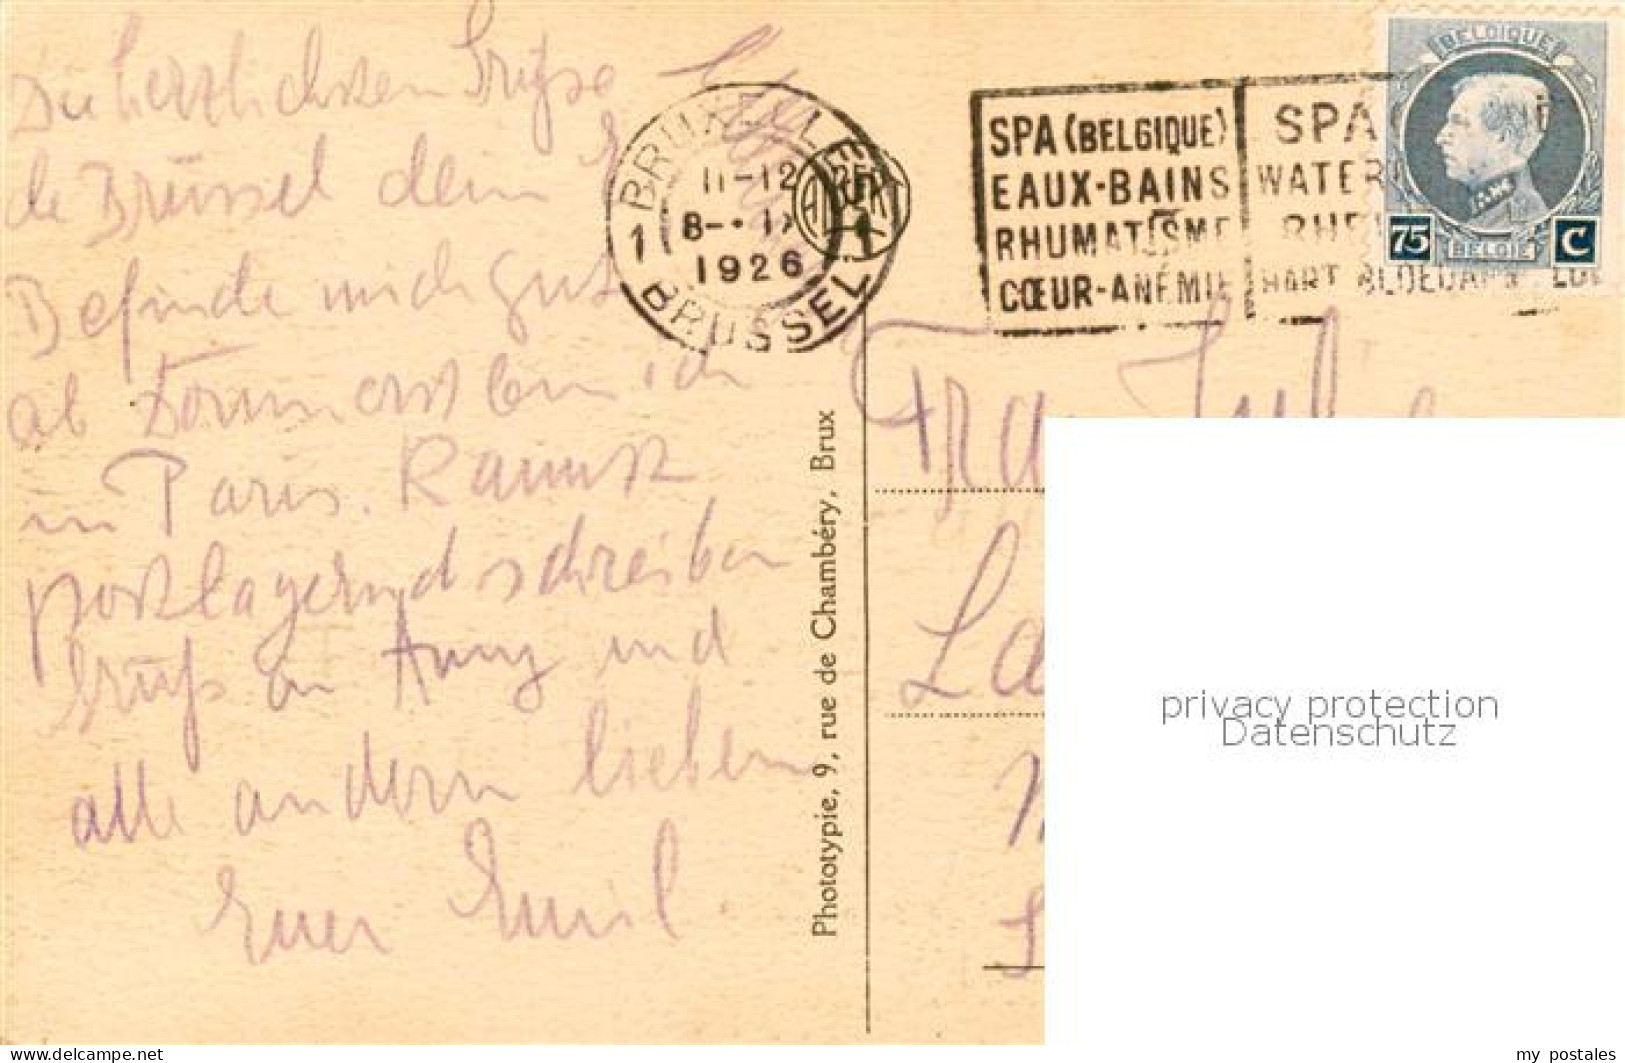 Die herzlichsten Grüsse
de Brüssel dein
Befinde mich gut
ab Donnerst bin ich
in Paris.
postlagernd schreiben
Gruß an Anny und
alle andern lieben
Euer Emil.
BRUXELLES
11-12
8-•IX
1926
1 BRUSSEL 1
SPA (BELGIQUE)
EAUX-BAINS
RHUMATISME
CŒUR-ANÉMIE
SPA
WATER
HART BLOEDARM
BELGIQUE
75 BELGIË C
Phototypie, 9, rue de Chambéry, Brux
La
privacy protection
Datenschutz
www.delcampe.net
my_postales